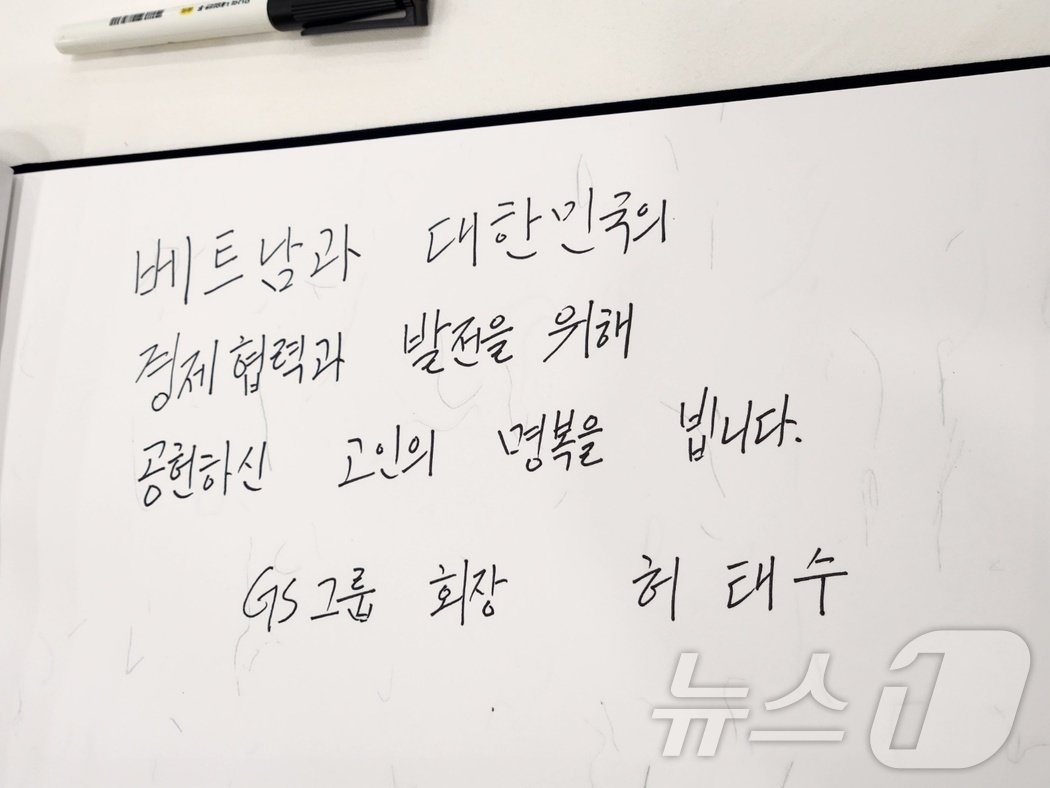 베트남과 대한민국의
경제협력과 발전을 위해
공헌하신 고인의 명복을 빕니다.
GS그룹 회장 허태수
뉴스1